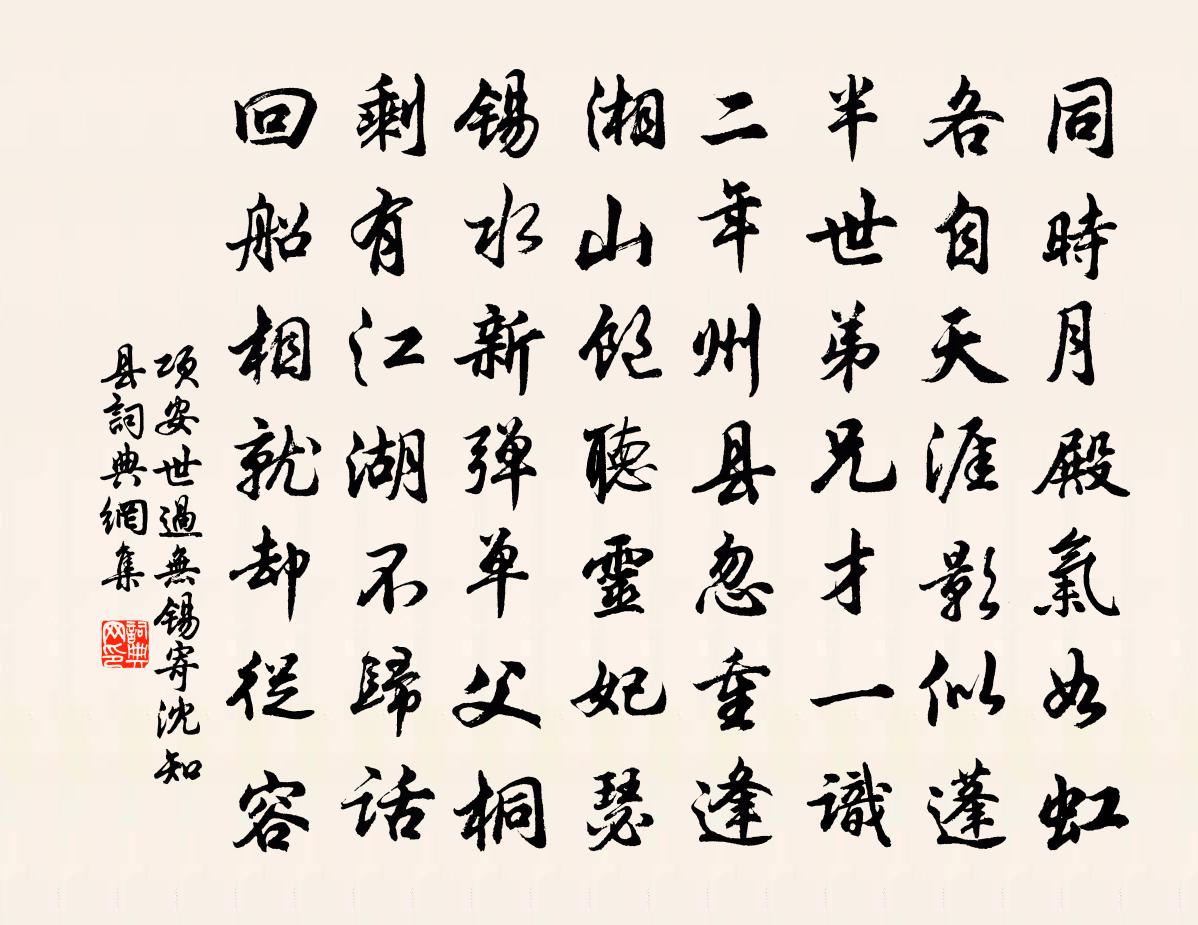 同時月殿氣如虹
各自天涯影似蓬
半世弟兄才一識
二年州县忽重逢
湘山飽聴靈妃瑟
锡水新弹单父桐
剩有江湖不歸話
回船相就却從容
项安世過無锡寄沈知
县詞典網集
詞典
网印